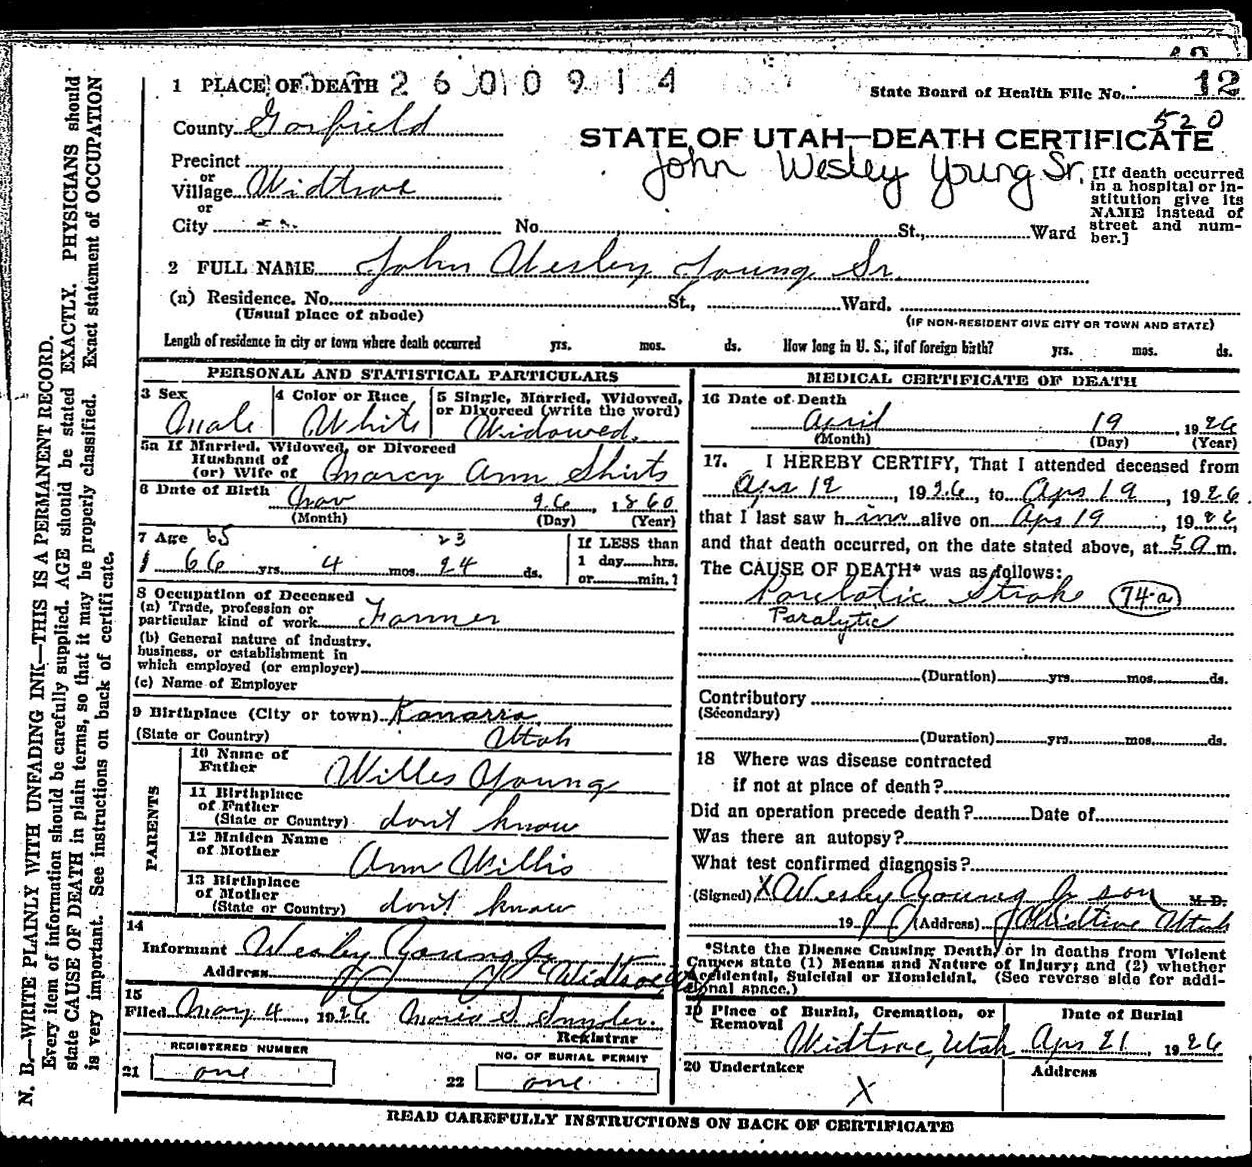 1 PLACE OF DEATH 2600914
State Board of Health File No. 12
520
County Garfield
STATE OF UTAH—DEATH CERTIFICATE
John Wesley Young Sr.
Precinct
or
Village Widtsoe
or
City No. St., Ward
[If death occurred in a hospital or institution give its NAME instead of street and number.]
2 FULL NAME John Wesley Young Sr.
(a) Residence. No. St., Ward.
(Usual place of abode)
(IF NON-RESIDENT GIVE CITY OR TOWN AND STATE)
Length of residence in city or town where death occurred yrs. mos. ds. How long in U. S., if of foreign birth? yrs. mos. ds.
PERSONAL AND STATISTICAL PARTICULARS
3 Sex Male
4 Color or Race White
5 Single, Married, Widowed, or Divorced (write the word) Widowed.
5a If Married, Widowed, or Divorced
Husband of
(or) Wife of Marcy Ann Shirts
6 Date of Birth Nov 26, 1860
(Month) (Day) (Year)
7 Age 65 23
66 yrs. 4 mos. 24 ds.
If LESS than
1 day hrs.
or min.?
8 Occupation of Deceased
(a) Trade, profession or
particular kind of work Farmer
(b) General nature of industry,
business, or establishment in
which employed (or employer)
(c) Name of Employer
9 Birthplace (City or town) Kanarra
(State or Country) Utah
PARENTS
10 Name of
Father Willes Young
11 Birthplace
of Father
(State or Country) don't know
12 Maiden Name
of Mother Ann Willis
13 Birthplace
of Mother
(State or Country) don't know
14
Informant Wesley Young Jr
Address Widtsoe
15
Filed May 4, 1926 S. Snyder.
Registrar
REGISTERED NUMBER
21 one
NO. OF BURIAL PERMIT
22 one
MEDICAL CERTIFICATE OF DEATH
16 Date of Death
April 19, 1926
(Month) (Day) (Year)
17. I HEREBY CERTIFY, That I attended deceased from
Apr 12, 1926, to Apr 19, 1926.
that I last saw him alive on Apr 19, 1926,
and that death occurred, on the date stated above, at 5 a m.
The CAUSE OF DEATH* was as follows:
Parelatic Stroke 74-a
Paralytic
(Duration) yrs. mos. ds.
Contributory
(Secondary)
(Duration) yrs. mos. ds.
18 Where was disease contracted
if not at place of death?
Did an operation precede death? Date of
Was there an autopsy?
What test confirmed diagnosis?
(Signed) X Wesley Young Jr son M.D.
19 (Address) Widtsoe Utah
*State the Disease Causing Death, or in deaths from Violent
Causes state (1) Means and Nature of Injury; and (2) whether
Accidental, Suicidal or Homicidal. (See reverse side for addi-
tional space.)
19 Place of Burial, Cremation, or
Removal
Widtsoe, Utah
Date of Burial
Apr 21, 1926
20 Undertaker X
Address
READ CAREFULLY INSTRUCTIONS ON BACK OF CERTIFICATE
N. B.—WRITE PLAINLY WITH UNFADING INK—THIS IS A PERMANENT RECORD.
Every item of information should be carefully supplied. AGE should be stated EXACTLY. PHYSICIANS should
state CAUSE OF DEATH in plain terms, so that it may be properly classified. Exact statement of OCCUPATION
is very important. See instructions on back of certificate.